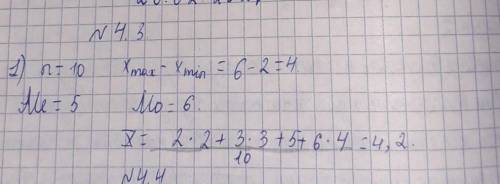 №4.3
1) n = 10 xmax - xmin = 6 - 2 = 4
Me = 5 Mo = 6.
X̄ = 2·2 + 3·3 + 5 + 6·4 / 10 = 4,2.
№4.4